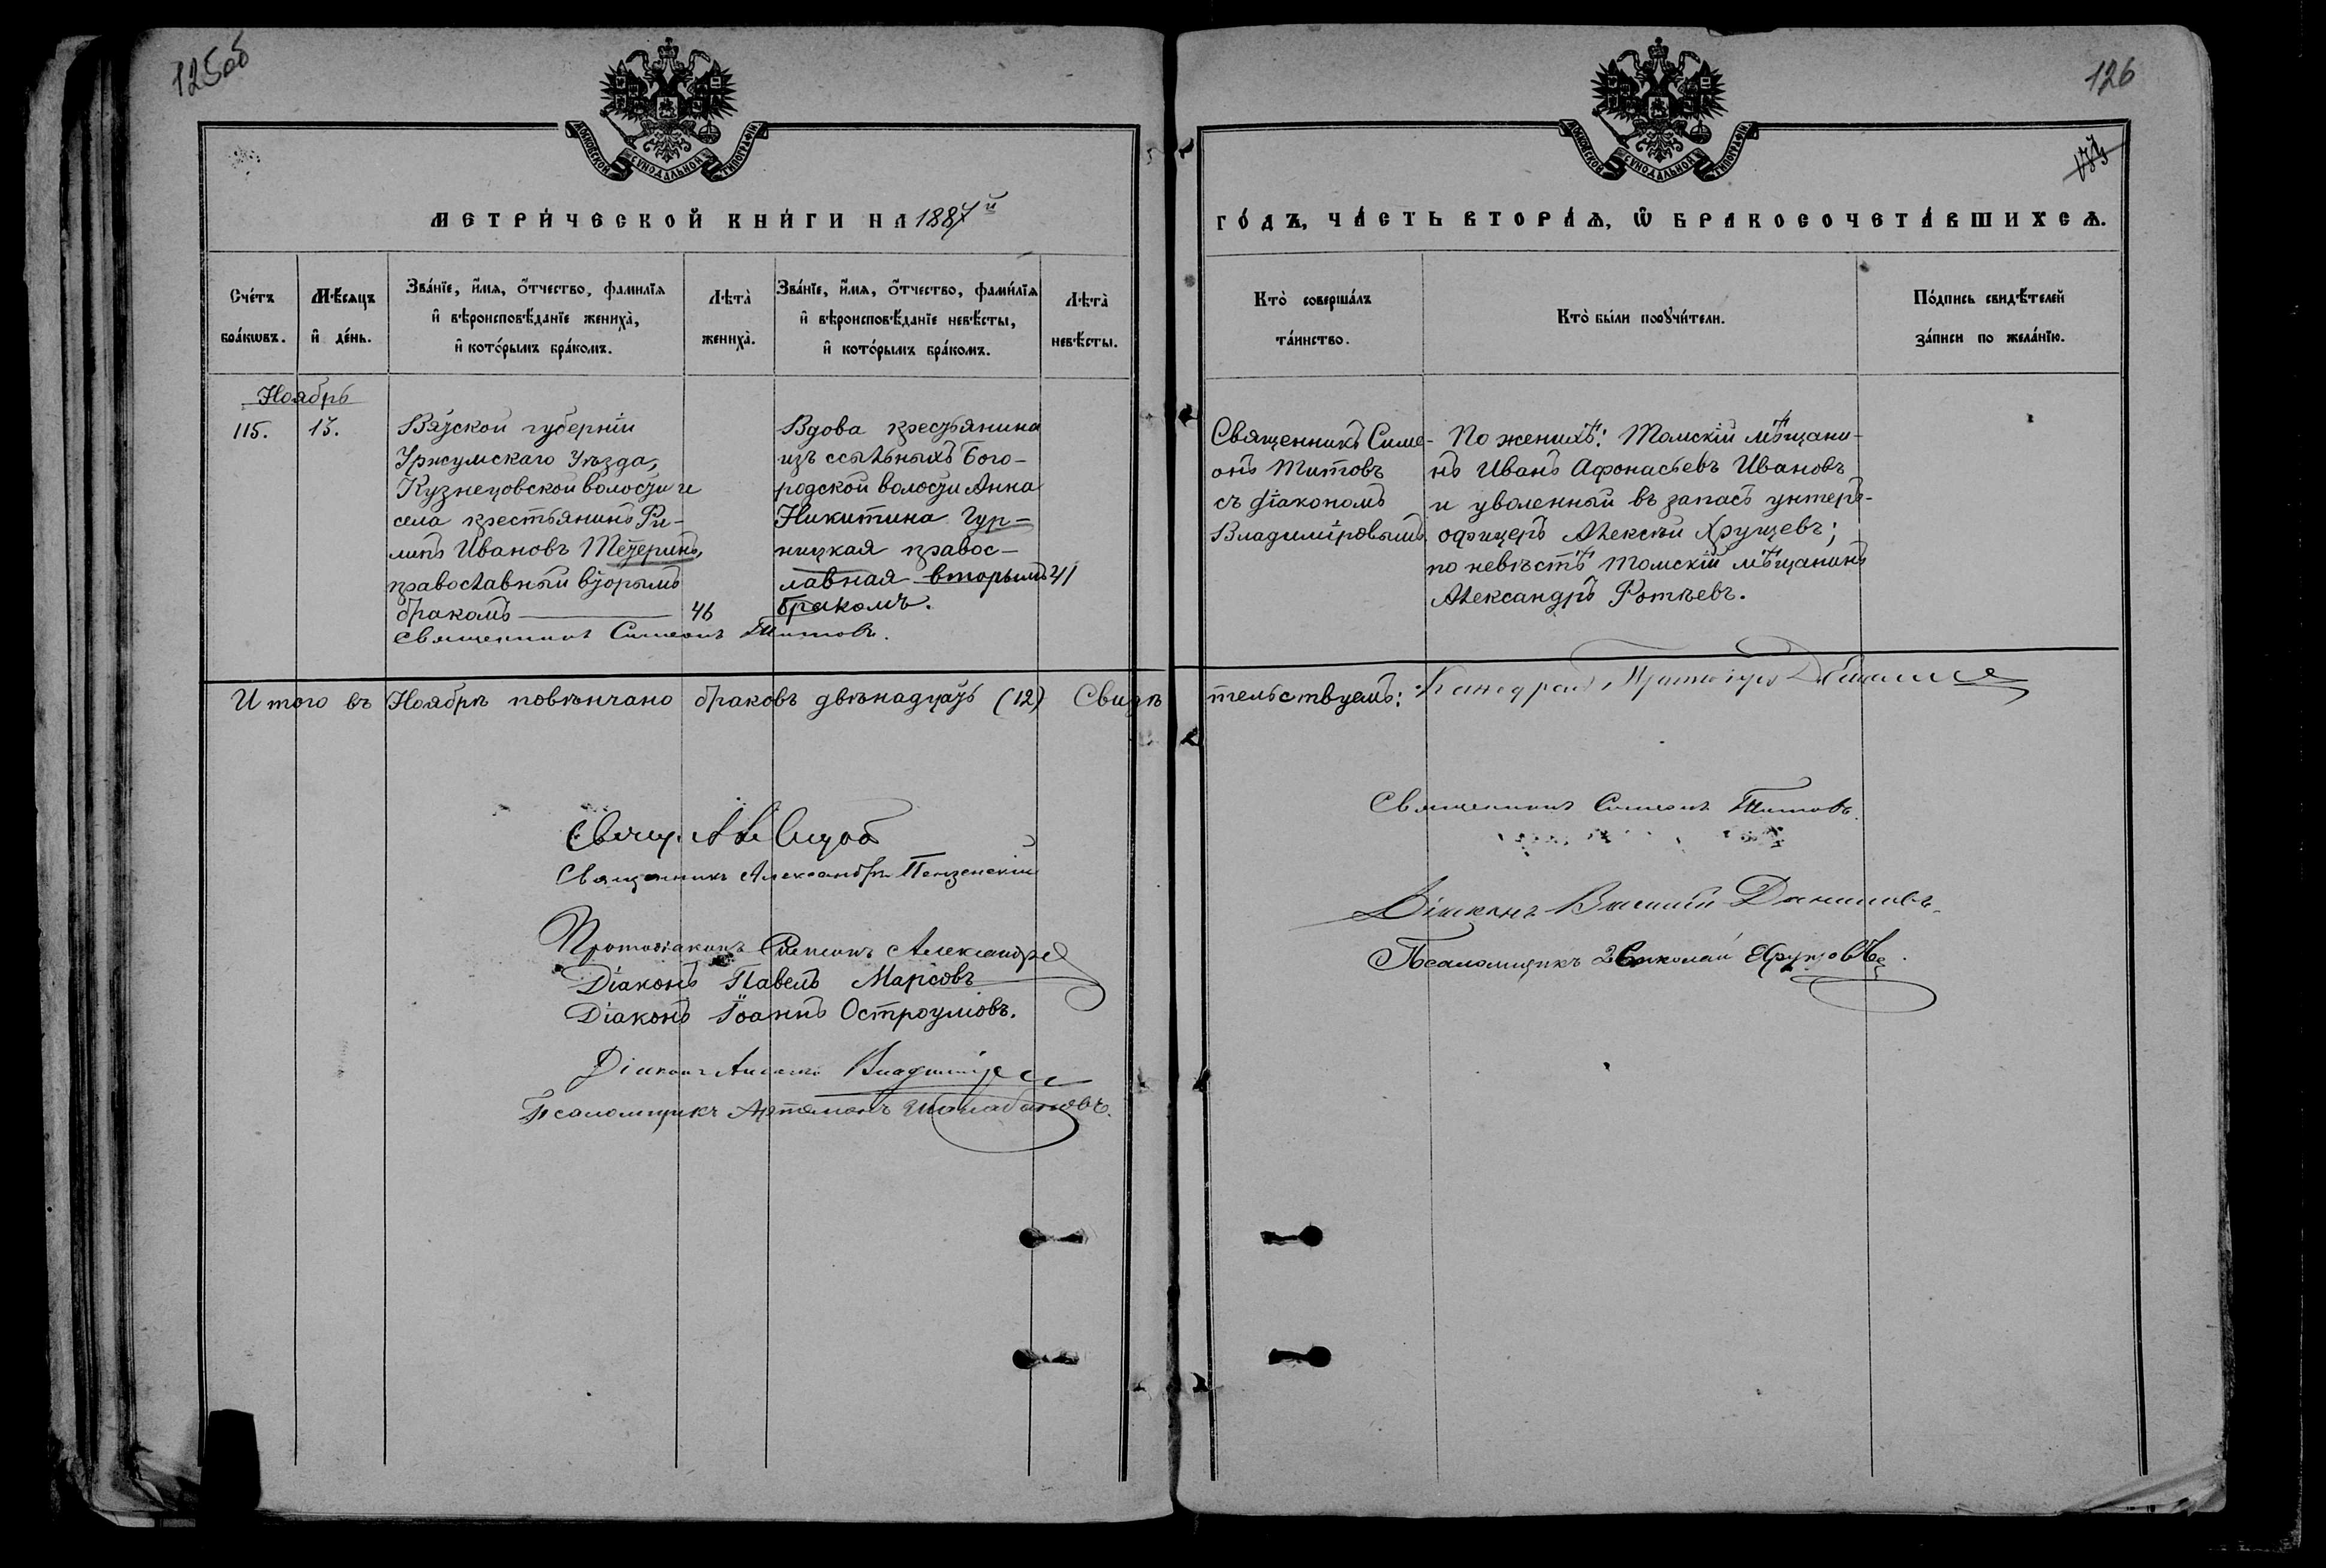 125об
126
МОСКОВСКОЙ СѴНОДАЛЬНОЙ ТИПОГРАФІИ
МОСКОВСКОЙ СѴНОДАЛЬНОЙ ТИПОГРАФІИ
МЕТРИ́ЧЕСКОЙ КНИ́ГИ НА 1887й
ГО́ДЪ, ЧА́СТЬ ВТОРА́Ѧ, Ѿ БРАКОСОЧЕТА́ВШИХСѦ.
Сче́тъ бра́кωвъ.
Мѣ́сяцъ и҆ де́нь.
Зва́нїе, и҆́мѧ, ѻ҆́тчество, фами́лїѧ
и҆ вѣроисповѣ́данїе жениха̀,
и҆ кото́рымъ бра́комъ.
Лѣта̀ жениха̀.
Зва́нїе, и҆́мѧ, ѻ҆́тчество, фами́лїѧ
и҆ вѣроисповѣ́данїе невѣ́сты,
и҆ кото́рымъ бра́комъ.
Лѣта̀ невѣ́сты.
Кто̀ соверша́лъ
та́инство.
Кто̀ бы́ли порꙋчи́тели.
По́дпись свидѣ́телей
за́писи по жела́нїю.
Ноябрь
115. 13.
Вятской губерніи
Уржумскаго уѣзда,
Кузнецовской волости и
села крестьянинъ Фи-
липъ Ивановъ Тетеринъ,
православный вторымъ
бракомъ 46
Вдова крестьянина
изъ ссыльныхъ Бого-
родской волости Анна
Никитина Гур-
ницкая правос-
лавная вторымъ 41
бракомъ.
Священникъ Симеонъ Титовъ.
Священникъ Симе-
онъ Титовъ
съ діакономъ
Владиміровымъ.
По женихѣ: Томскій мѣщани-
нъ Иванъ Афонасьевъ Ивановъ
и уволенный въ запасъ унтеръ-
офицеръ Алексѣй Хрущевъ;
по невѣстѣ Томскій мѣщанинъ
Александръ Фотѣевъ.
Итого въ Ноябрѣ повѣнчано браковъ двѣнадцать (12) Свидѣ
тельствуемъ:
Свящ.
Священникъ Александръ Пензенскій
Протодіаконъ Симеонъ Александров
Діаконъ Павелъ Марсовъ
Діаконъ Іоаннъ Остроумовъ.
Діаконъ Владиміров
Псаломщикъ Артемонъ Шалабановъ.
Священникъ Симеонъ Титовъ.
Діаконъ Василій Даниловъ.
Псаломщикъ Николай